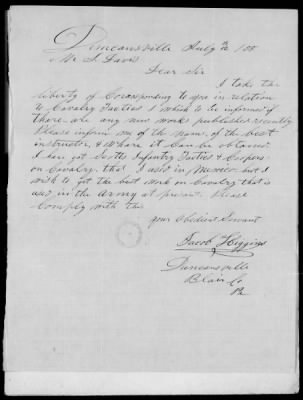 Duncansville July 20 / 55
Mr. J. Davis
Dear Sir
I take the
liberty of Coresponding to you in relation
to Cavalry Tacties I wish to be informed if
there are any new works published recently
Please inform me of the name of the best
instructor, & whare it can be obtained
I have got Scotts Infantry Tacties & Coopers
on Cavalry, that I used in Mexico but I
wish to get the best work on Cavalry that is
used in the Army at present. Please
Comply with this
your Obedient Servant
Jacob Higgins
Duncansville
Blair Co
Pa